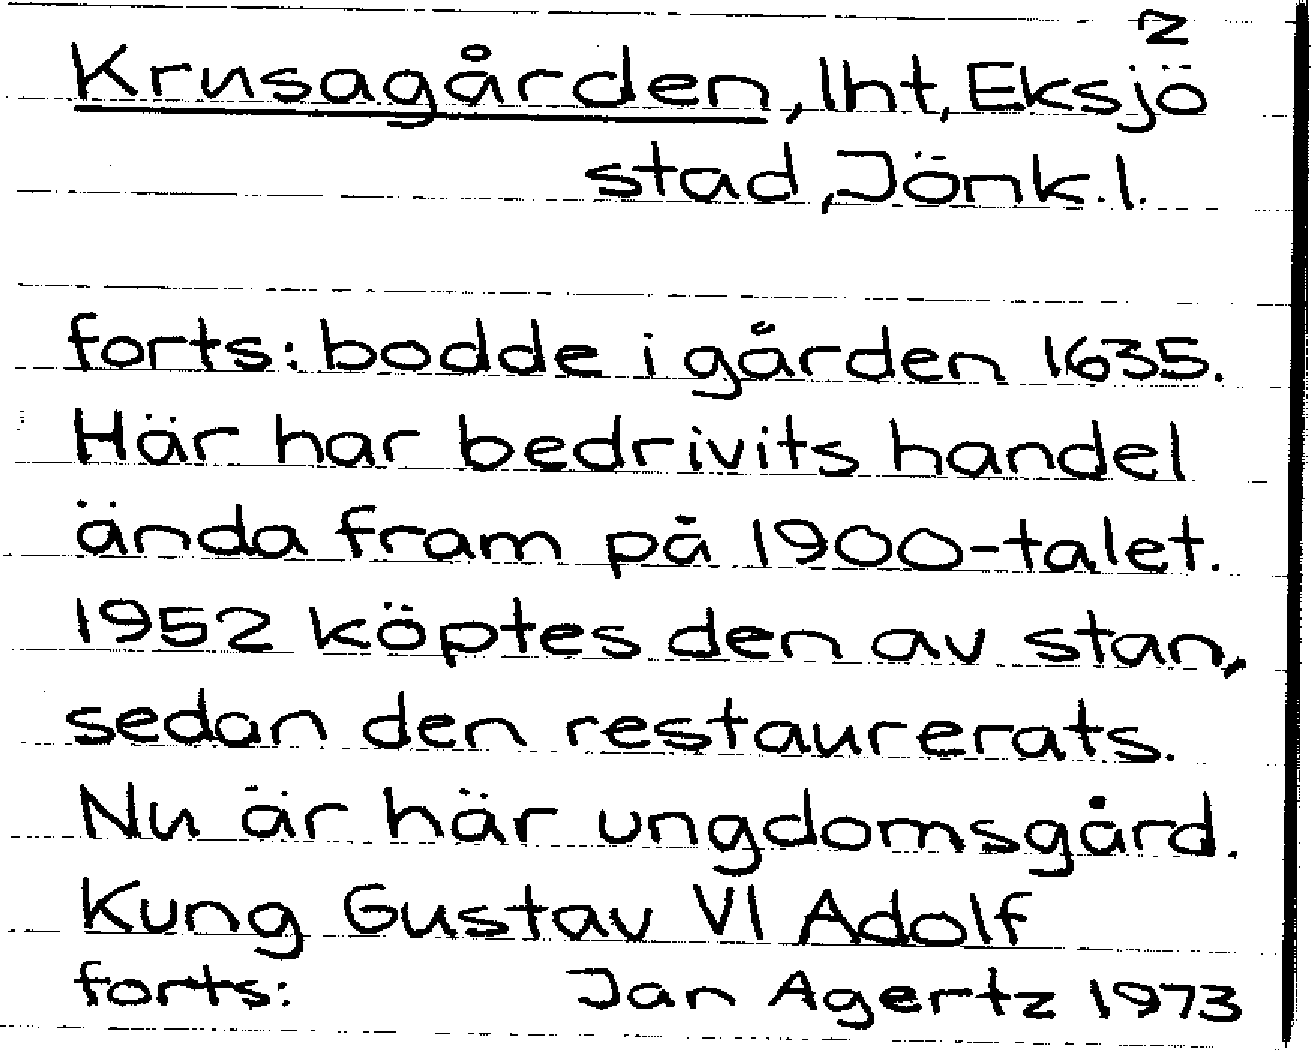 2
Krusagården, lht, Eksjö
stad, Jönk.l.
forts: bodde i gården 1635.
Här har bedrivits handel
ända fram på 1900-talet.
1952 köptes den av stan,
sedan den restaurerats.
Nu är här ungdomsgård.
Kung Gustav VI Adolf
forts: Jan Agertz 1973